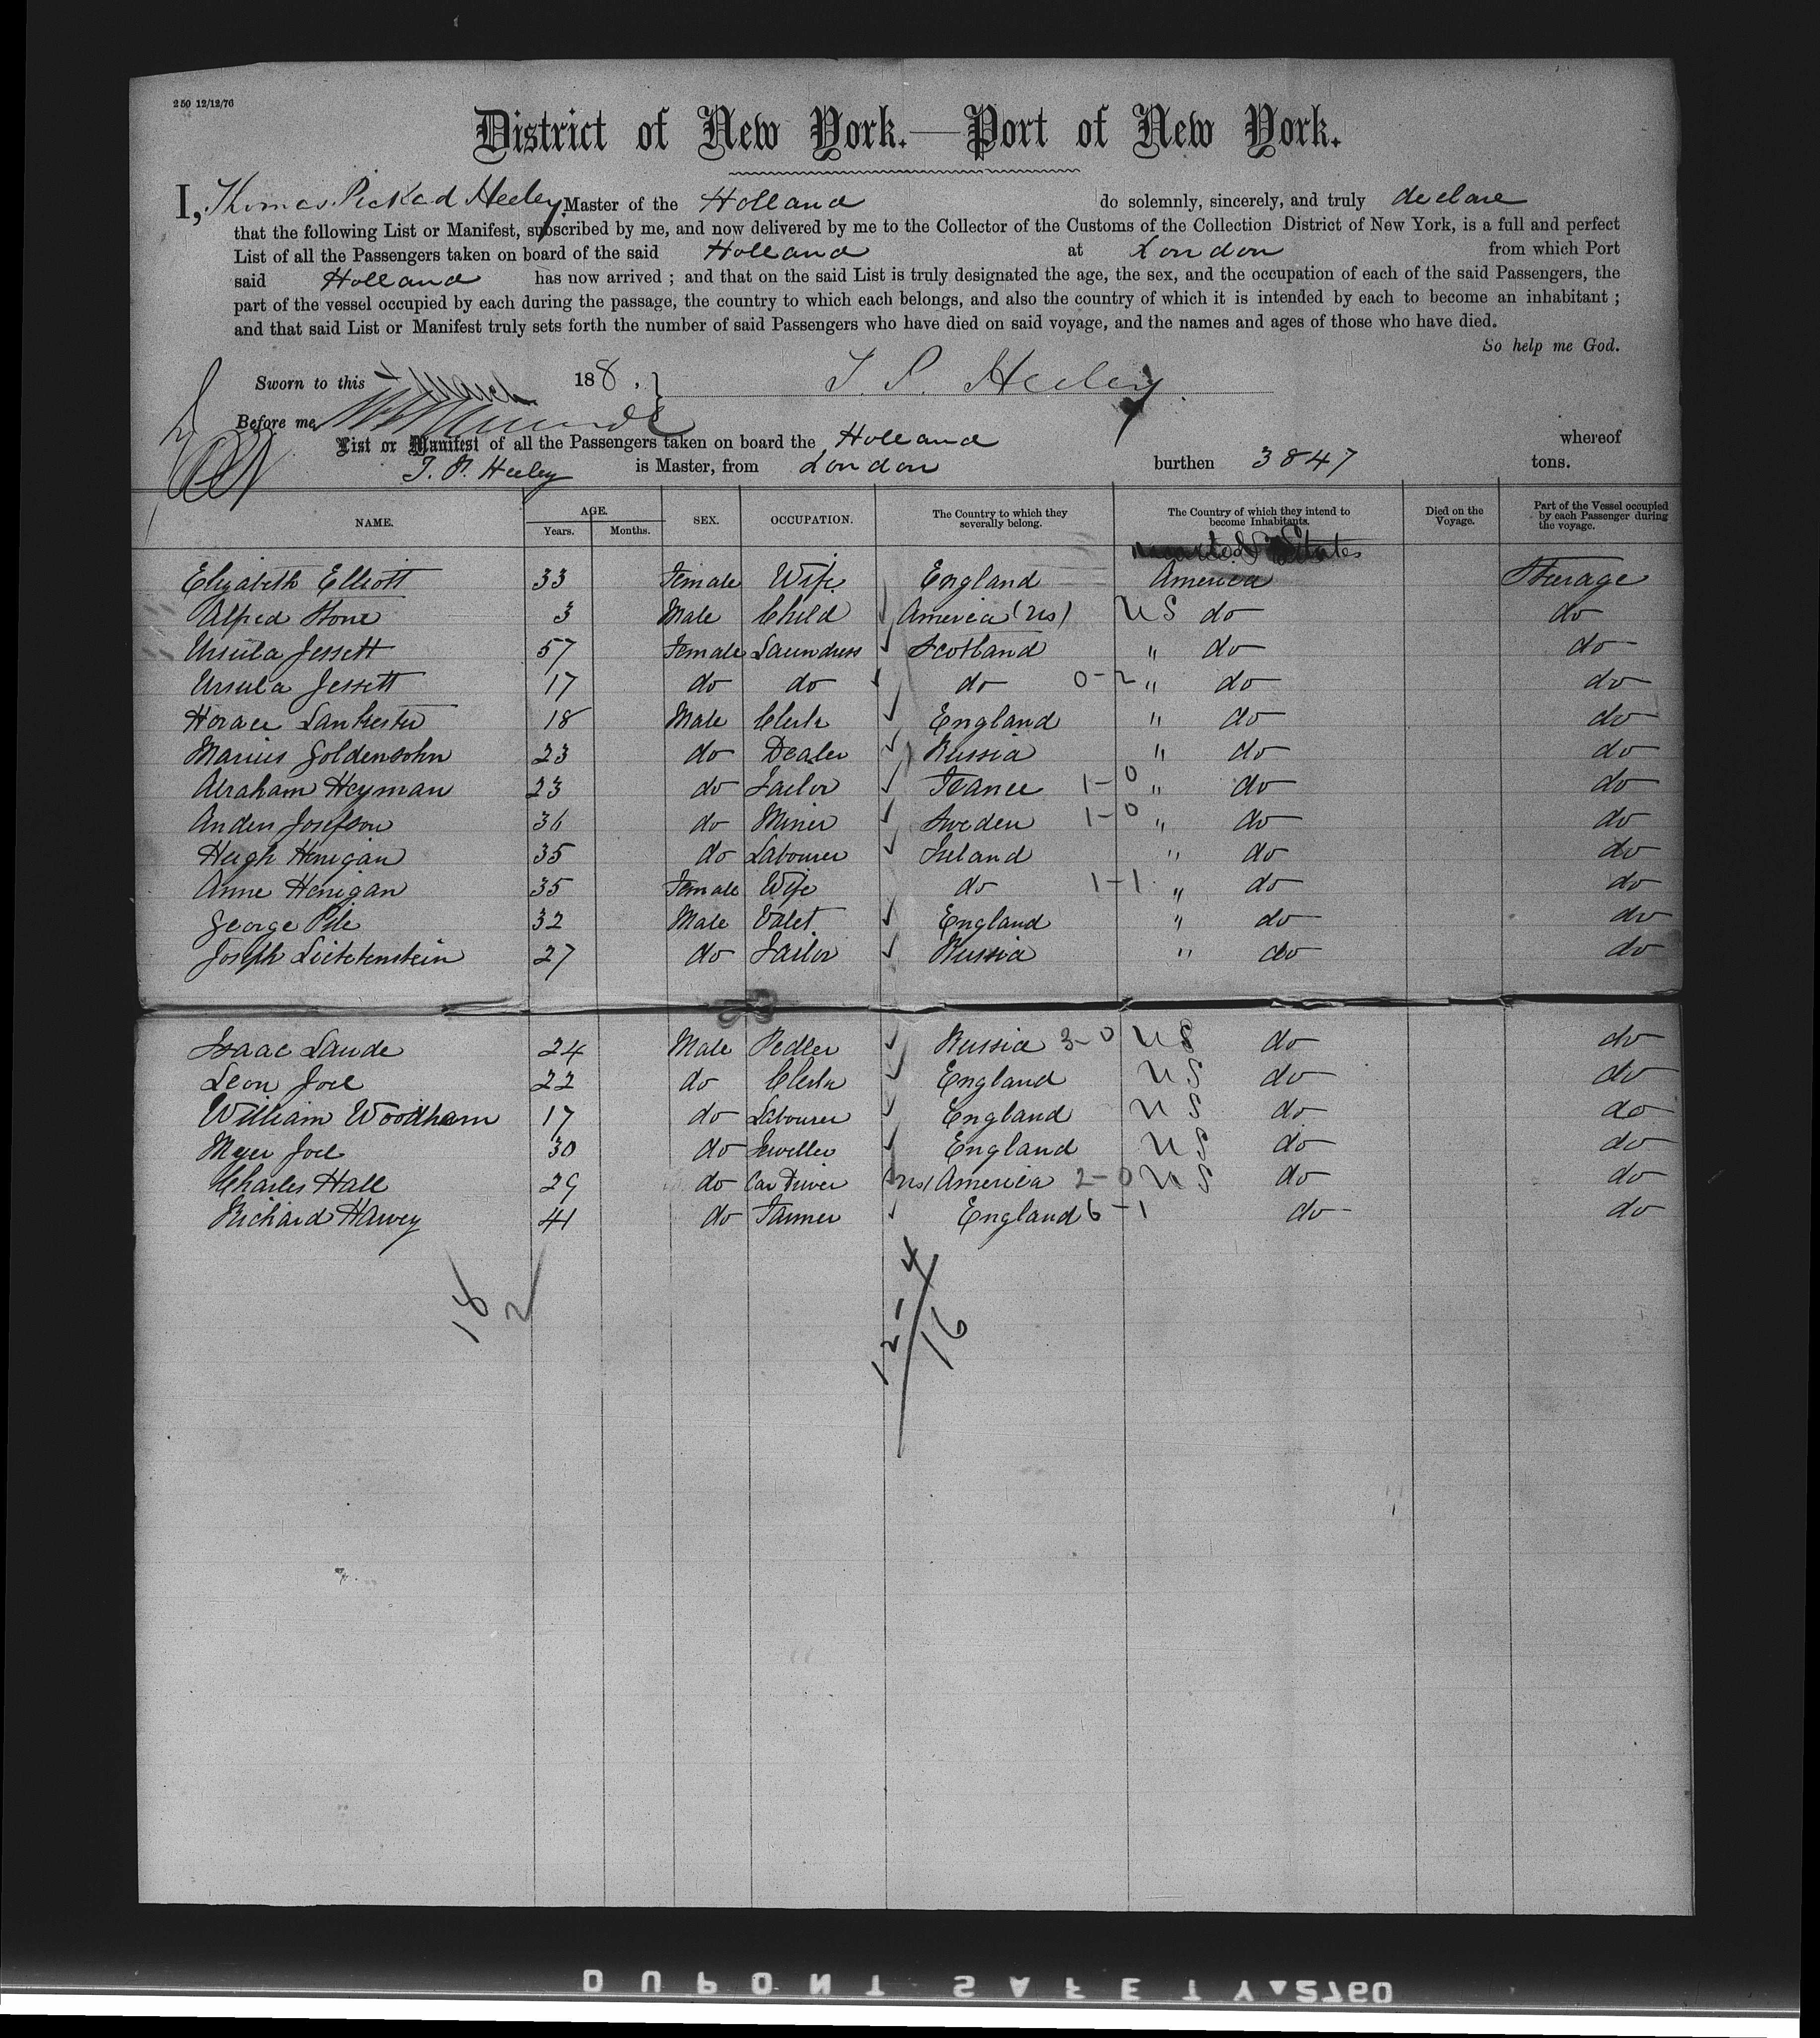 250 12/12/76
District of New York.—Port of New York.
I, Thomas Pickad Heeley, Master of the Holland do solemnly, sincerely, and truly declare
that the following List or Manifest, subscribed by me, and now delivered by me to the Collector of the Customs of the Collection District of New York, is a full and perfect
List of all the Passengers taken on board of the said Holland at London from which Port
said Holland has now arrived ; and that on the said List is truly designated the age, the sex, and the occupation of each of the said Passengers, the
part of the vessel occupied by each during the passage, the country to which each belongs, and also the country of which it is intended by each to become an inhabitant ;
and that said List or Manifest truly sets forth the number of said Passengers who have died on said voyage, and the names and ages of those who have died.
So help me God.
Sworn to this March 188 , } T P Heeley
Before me
List or Manifest of all the Passengers taken on board the Holland whereof
T. P. Heeley is Master, from London burthen 3847 tons.
NAME. AGE. Years. Months. SEX. OCCUPATION. The Country to which they severally belong. The Country of which they intend to become Inhabitants. Died on the Voyage. Part of the Vessel occupied by each Passenger during the voyage.
States
Elizabeth Elliott 33 Female Wife England America Steerage
Alfred Stone 3 Male Child America (US) US do do
Ursula Jessett 57 Female Laundress Scotland " do do
Ursula Jessett 17 do do do 0-2 " do do
Horace Lankester 18 Male Clerk England " do do
Marius Goldensohn 23 do Dealer Russia " do do
Abraham Heyman 23 do Tailor France 1-0 " do do
Anders Josefson 36 do Miner Sweden 1-0 " do do
Hugh Henigan 35 do Labourer Ireland " do do
Anne Henigan 35 Female Wife do 1-1 " do do
George Pile 32 Male Valet England " do do
Joseph Lichtenstein 27 do Tailor Russia " do do
Isaac Lande 24 Male Pedler Russia 3-0 US do do
Leon Joel 22 do Clerk England US do do
William Woodham 17 do Labourer England US do do
Meyer Joel 30 do Jeweller England US do do
Charles Hall 29 do Car Driver (US) America 2-0 US do do
Richard Harvey 41 do Farmer England 6-1 do do
16 2
12-4
16
DUPONT SAFETY▲2760